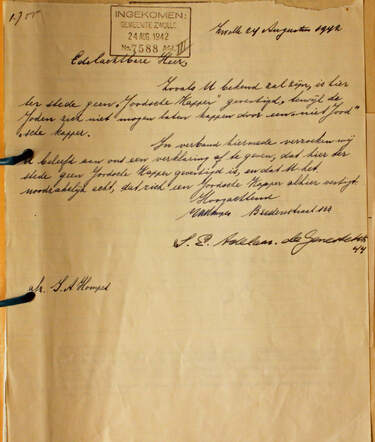 1.755
Zwolle 24 Augustus 1942
INGEKOMEN:
GEMEENTE ZWOLLE
24 AUG. 1942
No. 7588 Afd. III
Edelachtbare Heer,
Zooals U bekend zal zijn, is hier
ter stede geen "Joodsche Kapper" gevestigd, terwijl de
Joden zich niet mogen laten kappen door een "niet Jood"
sche kapper.
In verband hiermede verzoeken wij
U beleefd aan ons een verklaring af te geven, dat hier ter
stede geen Joodsche Kapper gevestigd is, en dat U het
noodzakelijk acht, dat zich een Joodsche Kapper alhier vestigt.
Hoogachtend
Bredenstraat
S. E. Adelaar.
S. A. Hompes